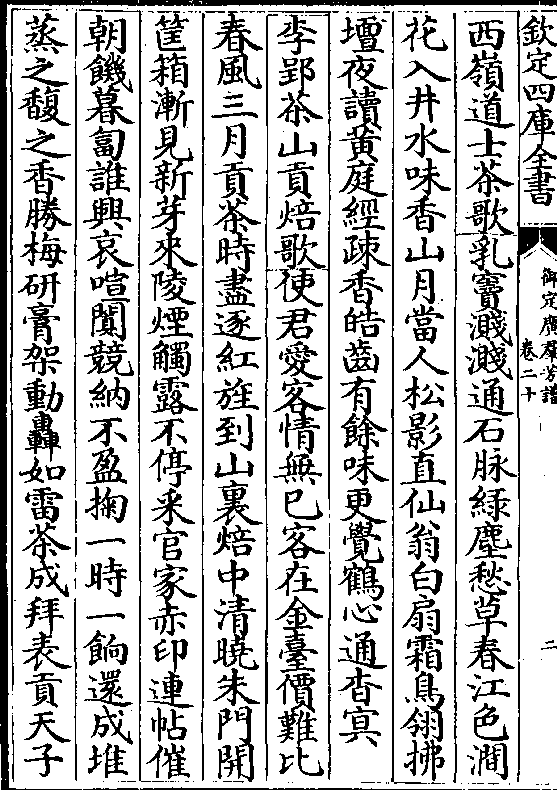 欽定四庫全書
御定廣羣芳譜
卷二十
二
西嶺道士茶歌乳竇濺濺通石脉綠塵愁草春江色澗
花入井水味香山月當人松影直仙翁白扇霜鳥翎拂
壇夜讀黃庭經疎香皓齒有餘味更覺鶴心通杳冥
李郢茶山貢焙歌使君愛客情無已客在金臺價難比
春風三月貢茶時盡逐紅旌到山裏焙中清曉朱門開
筐箱漸見新芽來陵煙觸露不停采官家赤印連帖催
朝饑暮匐誰興哀喧闐競納不盈掬一時一餉還成堆
蒸之馥之香勝梅研膏架動轟如雷茶成拜表貢天子